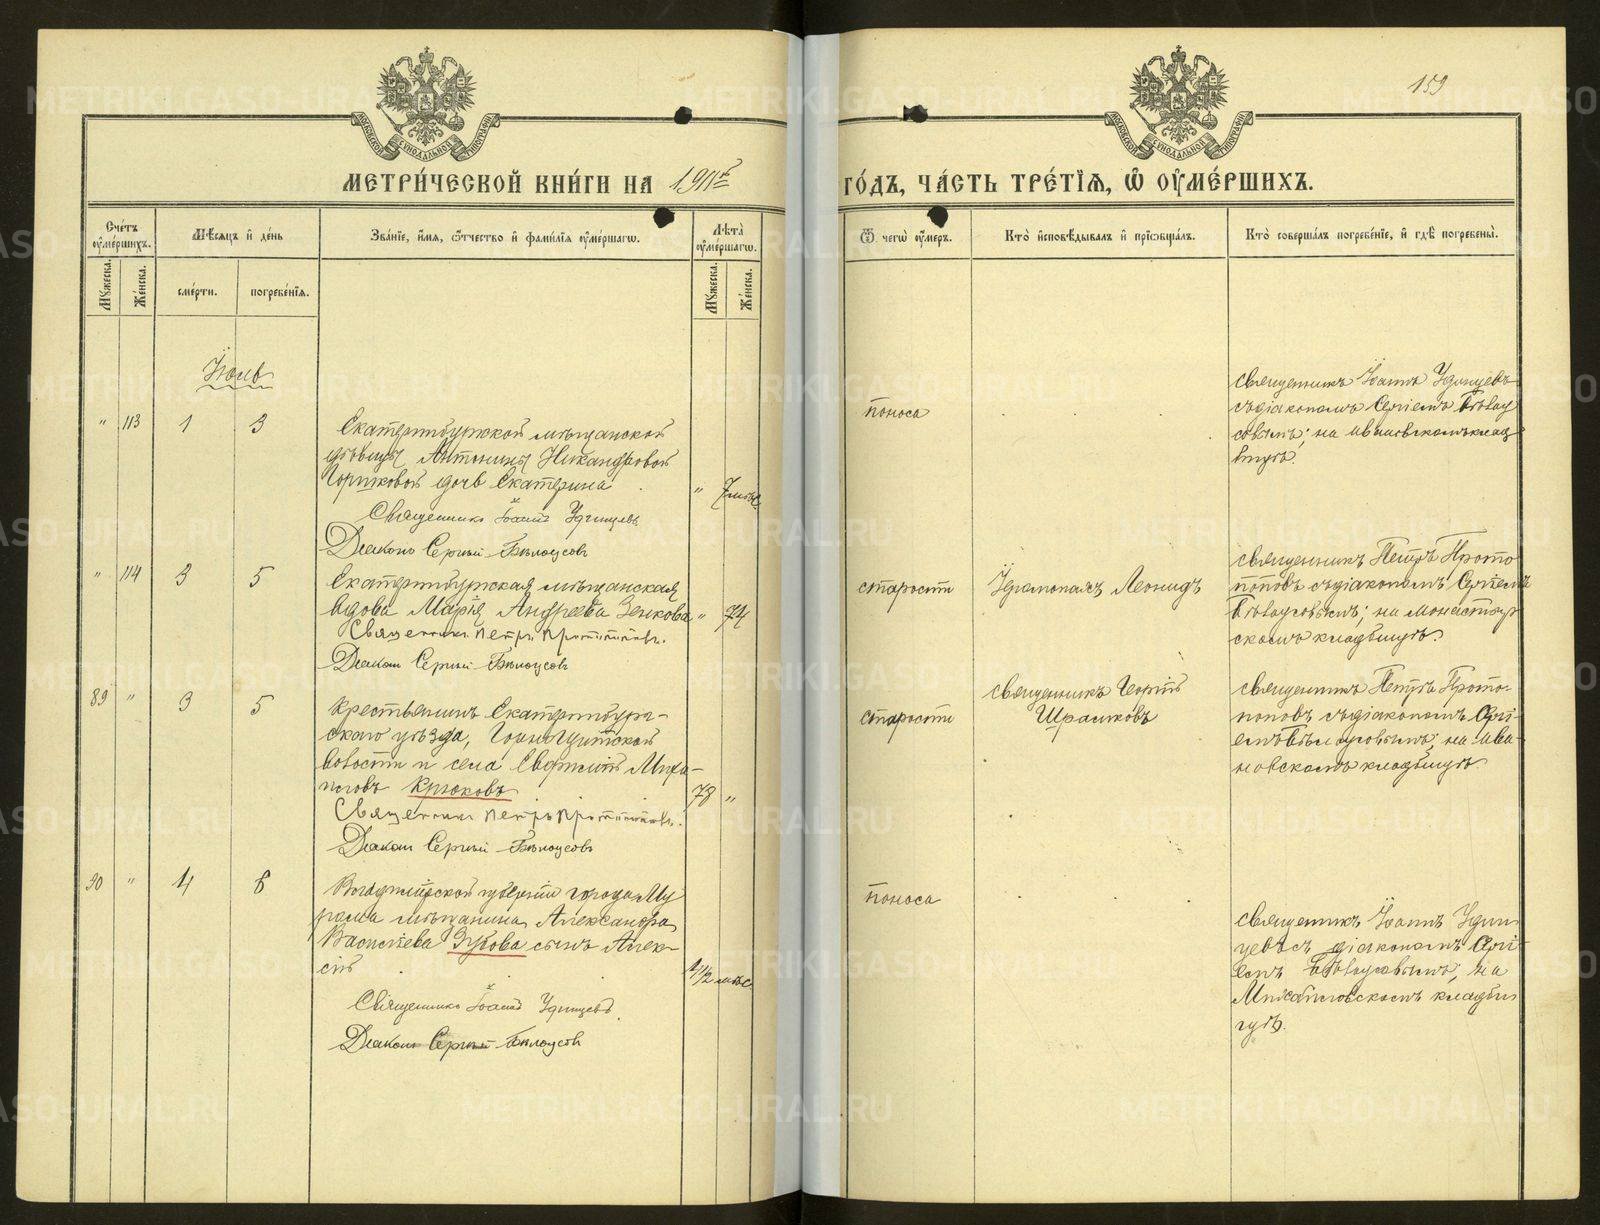 159
МЕТРИ́ЧЕСКОЙ КНИ́ГИ НА 1911й ГО́ДЪ, ЧА́СТЬ ТРЕ́ТЇѦ, Ѡ҆ ОУ҆МЕ́РШИХЪ.
Сче́тъ оу҆ме́ршихъ.
Мꙋ́жеска.
Же́нска.
Мѣ́сѧцъ и҆ де́нь
сме́рти.
погребе́нїѧ.
Зва́нїе, и҆́мѧ, ѻ҆́тчество и҆ фами́лїѧ оу҆ме́ршагѡ.
Лѣ́та оу҆ме́ршагѡ.
Мꙋ́жеска.
Же́нска.
Ѿ чегѡ̀ оу҆́меръ.
Кто̀ и҆сповѣ́дывалъ и҆ прїѡбща́лъ.
Кто̀ соверша́лъ погребе́нїе, и҆ гдѣ̀ погребены̀.
Іюль
" 113 1 3
Екатеринбуржской мѣщанской
дѣвицы Антонины Никандровой
Горшковой дочь Екатерина
" 7 мѣс.
Священникъ Іоаннъ Удинцевъ
Діаконъ Сергій Бѣлоусовъ
поноса
священникъ Іоаннъ Удинцевъ
съ діакономъ Сергіемъ Бѣлоу
совымъ; на Ивановскомъ клад
бищѣ.
" 114 3 5
Екатеринбургская мѣщанская
вдова Марія Андреева Зенкова
" 74
Священникъ Петръ Протопоповъ.
Діаконъ Сергій Бѣлоусовъ
старости
Іеромонахъ Леонидъ
священникъ Петръ Прото
поповъ съ діакономъ Сергіемъ
Бѣлоусовымъ; на монастыр
скомъ кладбищѣ.
89 " 3 5
Крестьянинъ Екатеринбург-
скаго уѣзда,
волости и села Евфимій Миха-
иловъ Крюковъ
78 "
Священникъ Петръ Протопоповъ.
Діаконъ Сергій Бѣлоусовъ
старости
священникъ Георгій
священникъ Петръ Прото-
поповъ съ діакономъ Сергі-
емъ Бѣлоусовымъ; на Ива-
новскомъ кладбищѣ.
90 " 4 6
Владимірской губерніи города Му
рома мѣщанина Александра
Васильева Зубова сынъ Алек-
сій
1 1/2 мѣс.
Священникъ Іоаннъ Удинцевъ.
Діаконъ Сергій Бѣлоусовъ
поноса
священникъ Іоаннъ Удин
цевъ съ діакономъ Сергі-
емъ Бѣлоусовымъ; на
Михайловскомъ кладби
щѣ.
METRIKI.GASO-URAL.RU